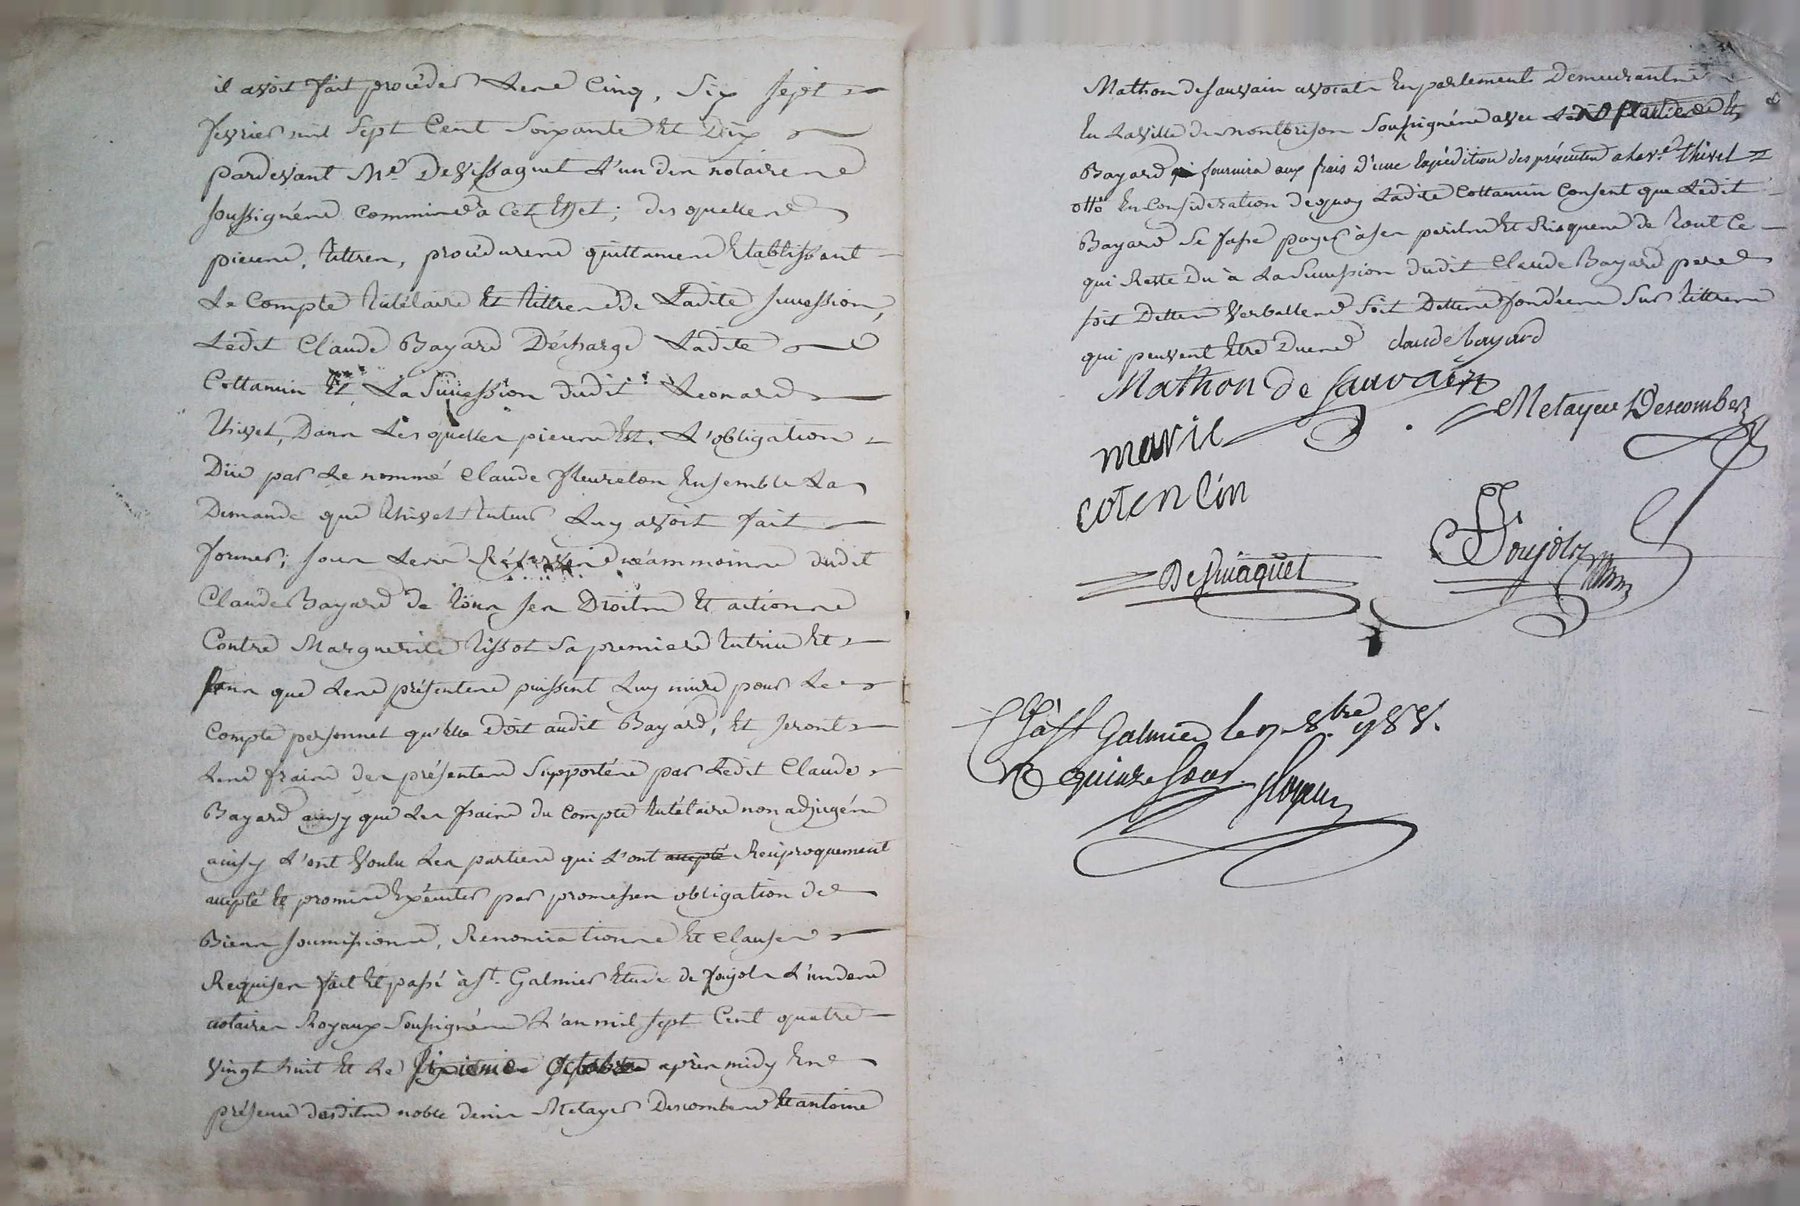 il avoit fait proceder les Cinq, Six sept
fevrier mil sept Cent Soixante Et Dix
pardevant Me Devissaguet L'un des notaires
soussignés Commis a Cet Effet; desquelles
pieces, tittres, procedures quittances Etablissant
Le Compte tutélaire Et tittres de Ladite succession,
Ledit Claude Bayard Décharge Ladite
Cottancin Et La Succession dudit Leonard
thivet, Dans Lesquelles pieces Est L'obligation
Düe par Le nommé Claude fleureton Ensemble La
Demande que thivet tuteur Luy avoit fait
former; sous Les Réserves néammoins dudit
Claude Bayard de tous ses Droits Et actions
Contre Marguerite tissot Sa premiere tutrice Et
sans que Les présentes puissent Luy nuire pour Le
Compte personnel qu'elle doit audit Bayard, Et seront
Les frais des présentes Supportés par Ledit Claude
Bayard ainsy que Les frais du Compte tutélaire non adjugés
ainsy L'ont voulu Les parties qui L'ont accepté Réciproquement
accepté Et promis Exécuter par promesses obligation de
Biens soumissions, Renonciations Et Clauses
Requises fait Et passé à St. Galmier Etude de foujols L'un des
notaires Royaux Soussignés L'an mil sept Cent quatre
vingt huit Et Le sixieme octobre après midy En
présence desdits noble denis Metayer Descombes Et antoine
Mathon de sauvain avocat En parlement Demeurant
En La Ville de montbrison Soussignés avec
Bayard qui fournira aux frais d'une Expédition des présentes a La ve. thivet
En Consideration de quoy Ladite Cottancin Consent que Ledit
Bayard Se fasse payer à ses perils Et Risques de tout Ce
qui Reste Du à La Succession dudit Claude Bayard pere
soit Dettes Verballes Soit Dettes fondées Sur tittres
qui peuvent Etre Dues claude bayard
Mathon de Sauvain
Metayer Descombes
marie
cotencin
Devissaguet
foujols
à St Galmier le 8bre 1788.
R quinze sous